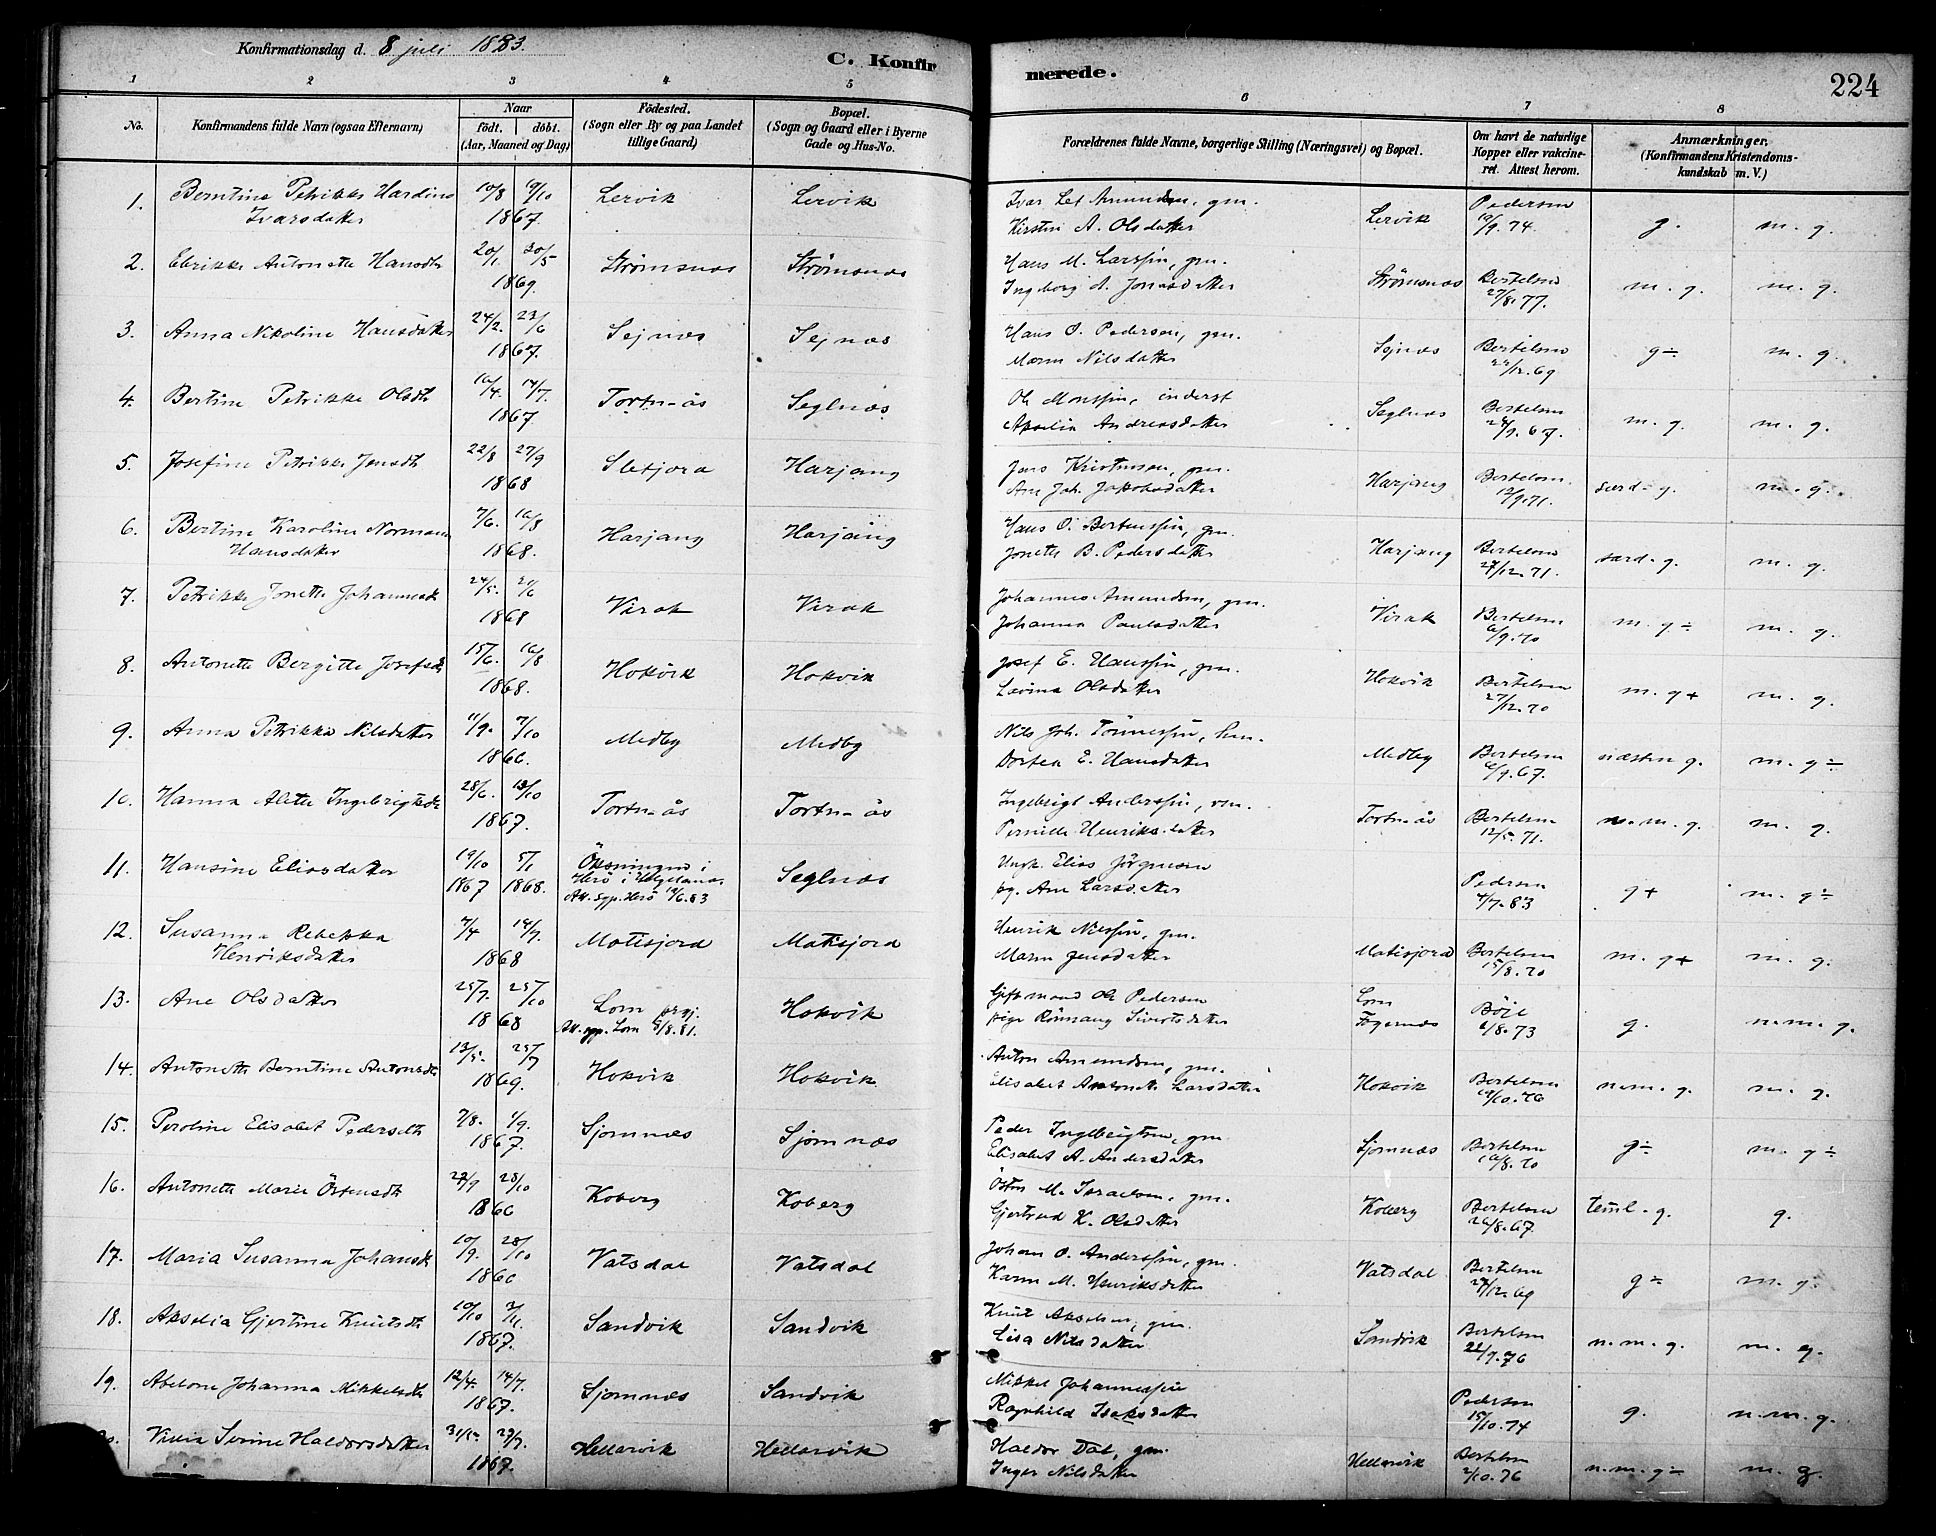 Konfirmationsdag d. 8 juli 1883.
C. Konfirmerede.
224
1 2 3 4 5 6 7 8
No.
Konfirmandens fulde Navn (ogsaa Efternavn)
Naar
födt. döbt.
(Aar, Maaned og Dag)
Födested.
(Sogn eller By og paa Landet
tillige Gaard)
Bopæl.
(Sogn og Gaard eller i Byerne
Gade og Hus-No.
Forældrenes fulde Navne, borgerlige Stilling (Næringsvei) og Bopæl.
Om havt de naturlige
Kopper eller vakcine-
ret. Attest herom.
Anmærkninger.
(Konfirmandens Kristendoms-
kundskab m. V.)
1. Berntine Petrikke Hardine 10/8 Lervik Lervik Ivar Amundsen, gm. Lervik Pedersen g. m. g.
Ivarsdatter 1867. Kirstin A. Olsdatter 74.
2. Antonette Hansdtr 20/1 30/5 Strømsnæs Strømsnæs Hans M. Larssøn, gm. Strømsnæs Bertelsen m. g. m. g.
1869. Ingeborg A. Jonasdatter 27/8. 77.
3. Anna Nikoline Hansdatter 24/2. 23/6 Sejnæs Sejnæs Hans O. Pedersen, gm. Sejnæs Bertelsen g÷ m. g.
1867. Maren Nilsdatter 22/12. 69
4. Bertine Petrikke Olsdtr 14/7. Tortnås Seglnæs Ole Monssøn, inderst Seglnæs Bertelsen m. g. m. g.
1867. Akselia Andreasdatter 24/9. 67.
5. Josefine Petrikke Jensdtr 22/8 27/9 Sletjora Harjang Jens Kristensen, gm. Harjang Bertelsen særd. g. m. g.
1868 Ane Joh. Jakobsdatter 12/9. 71.
6. Bertine Karoline Normann 7/6. 16/8 Harjang Harjang Hans O. Berntssøn, gm. Harjang Bertelsen særd. g. m. g.
Hansdatter 1868. Jonette B. Pedersdatter 27/12. 71.
7. Petrikke Jonette Johannesdtr 24/5. 21/6 Virak Virak Johannes Amundsen, gm. Virak Bertelsen m. g÷ m. g.
1868 Johanna Paulsdatter 6/9. 70
8. Antonette Bergitte Josefsdtr 15/6. 16/8 Hokvik Hokvik Josef E. Hanssøn, gm. Hokvik Bertelsen m. g+ m. g.
1868. Lovina Olsdatter 27/12. 70
9. Anna Petrikka Nilsdatter 11/9. 7/10 Medby Medby Nils Joh. Tönnessøn, Medby Bertelsen næsten g. m. g÷
1866. Dortea E. Hansdatter 6/9. 67.
10. Hanna Alette Ingebrigtsdtr 28/6. 13/10 Tortnås Tortnås Ingebrigt Anderssøn, Tortnås Bertelsen n. m. g. m. g.
1867. Pernille Henriksdatter 12/5. 71.
11. Hansine Eliasdatter 19/10 5/1 Öksningen i Seglnæs Ungk. Elias Jörgensen Pedersen g+ m. g÷
1867 1868. Herö i Helgeland. pg. Ane Larsdatter 4/7. 83
Att. sgp. Herö 12/6. 83
12. Susanna Rebekka 7/4 14/7. Matisjord Matisjord Henrik Nilssøn, gm. Matisjord Bertelsen m. g+ m. g.
Henriksdatter 1868 Maren Jensdatter 15/8. 70
13. Ane Olsdatter 25/7. 25/10 Lom prgj. Hokvik Giftmand Ole Pedersen Lom Böje g. n. m. g.
1868 Att. sgp. Lom 5/8. 81. pige Rönnaug Sivertsdatter 6/8. 73
14. Antonette Berntine Antonsdtr 13/5. 25/7 Hokvik Hokvik Anton Amundsen, gm. Hokvik Bertelsen n. m. g. m. g.
1869. Elisabet Larsdatter 19/10. 76
15. Peroline Elisabet Pedersdtr 7/8. 1/9. Sjomnæs Sjomnæs Peder Ingebrigtsen, gm. Sjomnæs Bertelsen g÷ m. g÷
1867. Elisabet A. Andersdatter 16/8. 70
16. Antonette Marie Östensdtr 28/10 Koberg Koberg Östen M. Israelsen, gm. Koberg Bertelsen teml. g. g.
1866 Gjertrud K. Olsdatter 26/8. 67
17. Maria Susanna Johansdtr 10/9. 28/10 Vatsdal Vatsdal Johan O. Anderssøn, gm. Vatsdal Bertelsen g÷ m. g.
1866 Karen M. Henriksdatter 27/12. 69
18. Akselia Gjertine Knutsdtr 10/10 3/11. Sandvik Sandvik Knut Akselsen, gm. Sandvik Bertelsen n. m. g. m. g.
1867. Lisa Nilsdatter 22/9. 76
19. Abelone Johanna Mikkelsdtr 12/4. 14/7. Sjomnæs Sandvik Mikkel Johannessøn Pedersen g. n. m. g.
1867. Ragnhild Isaksdatter 15/10. 74
Sivine Haldorsdatter 31/5. Hellarvik Hellarvik Haldor Dal, gm. Hellarvik Bertelsen n. m. g÷ m. g
1867. Inger Nilsdatter 2/10. 76